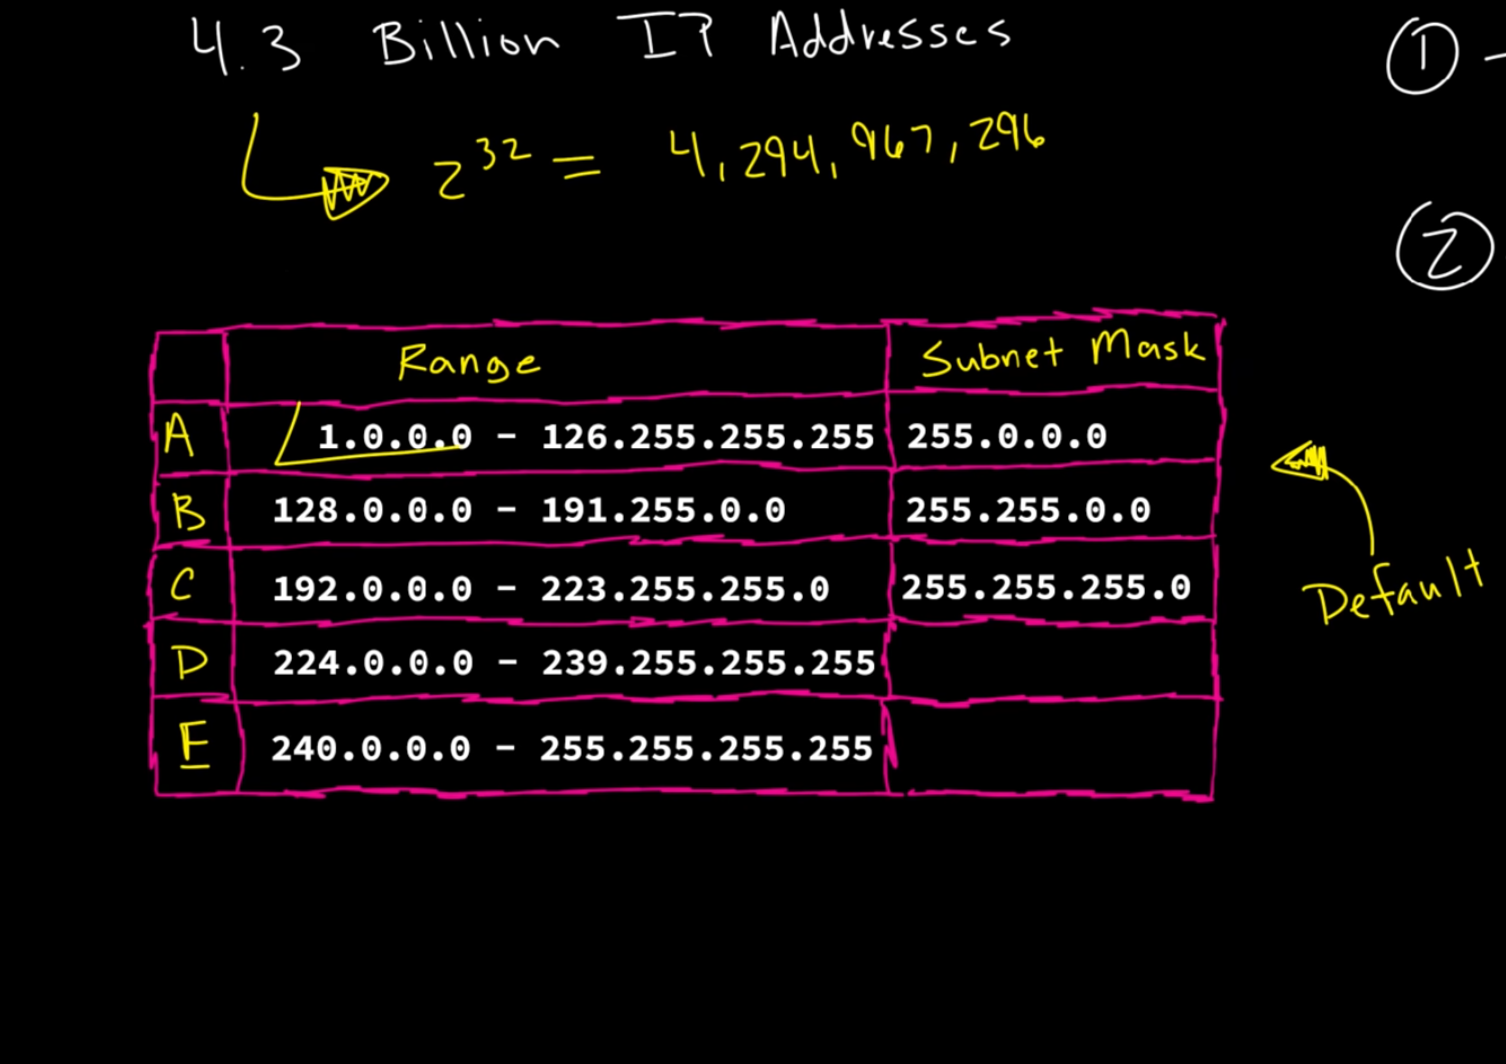 4.3 Billion IP Addresses
①
2^32 = 4,294,967,296
②
Range Subnet Mask
A 1.0.0.0 - 126.255.255.255 255.0.0.0
B 128.0.0.0 - 191.255.0.0 255.255.0.0
C 192.0.0.0 - 223.255.255.0 255.255.255.0
Default
D 224.0.0.0 - 239.255.255.255
E 240.0.0.0 - 255.255.255.255